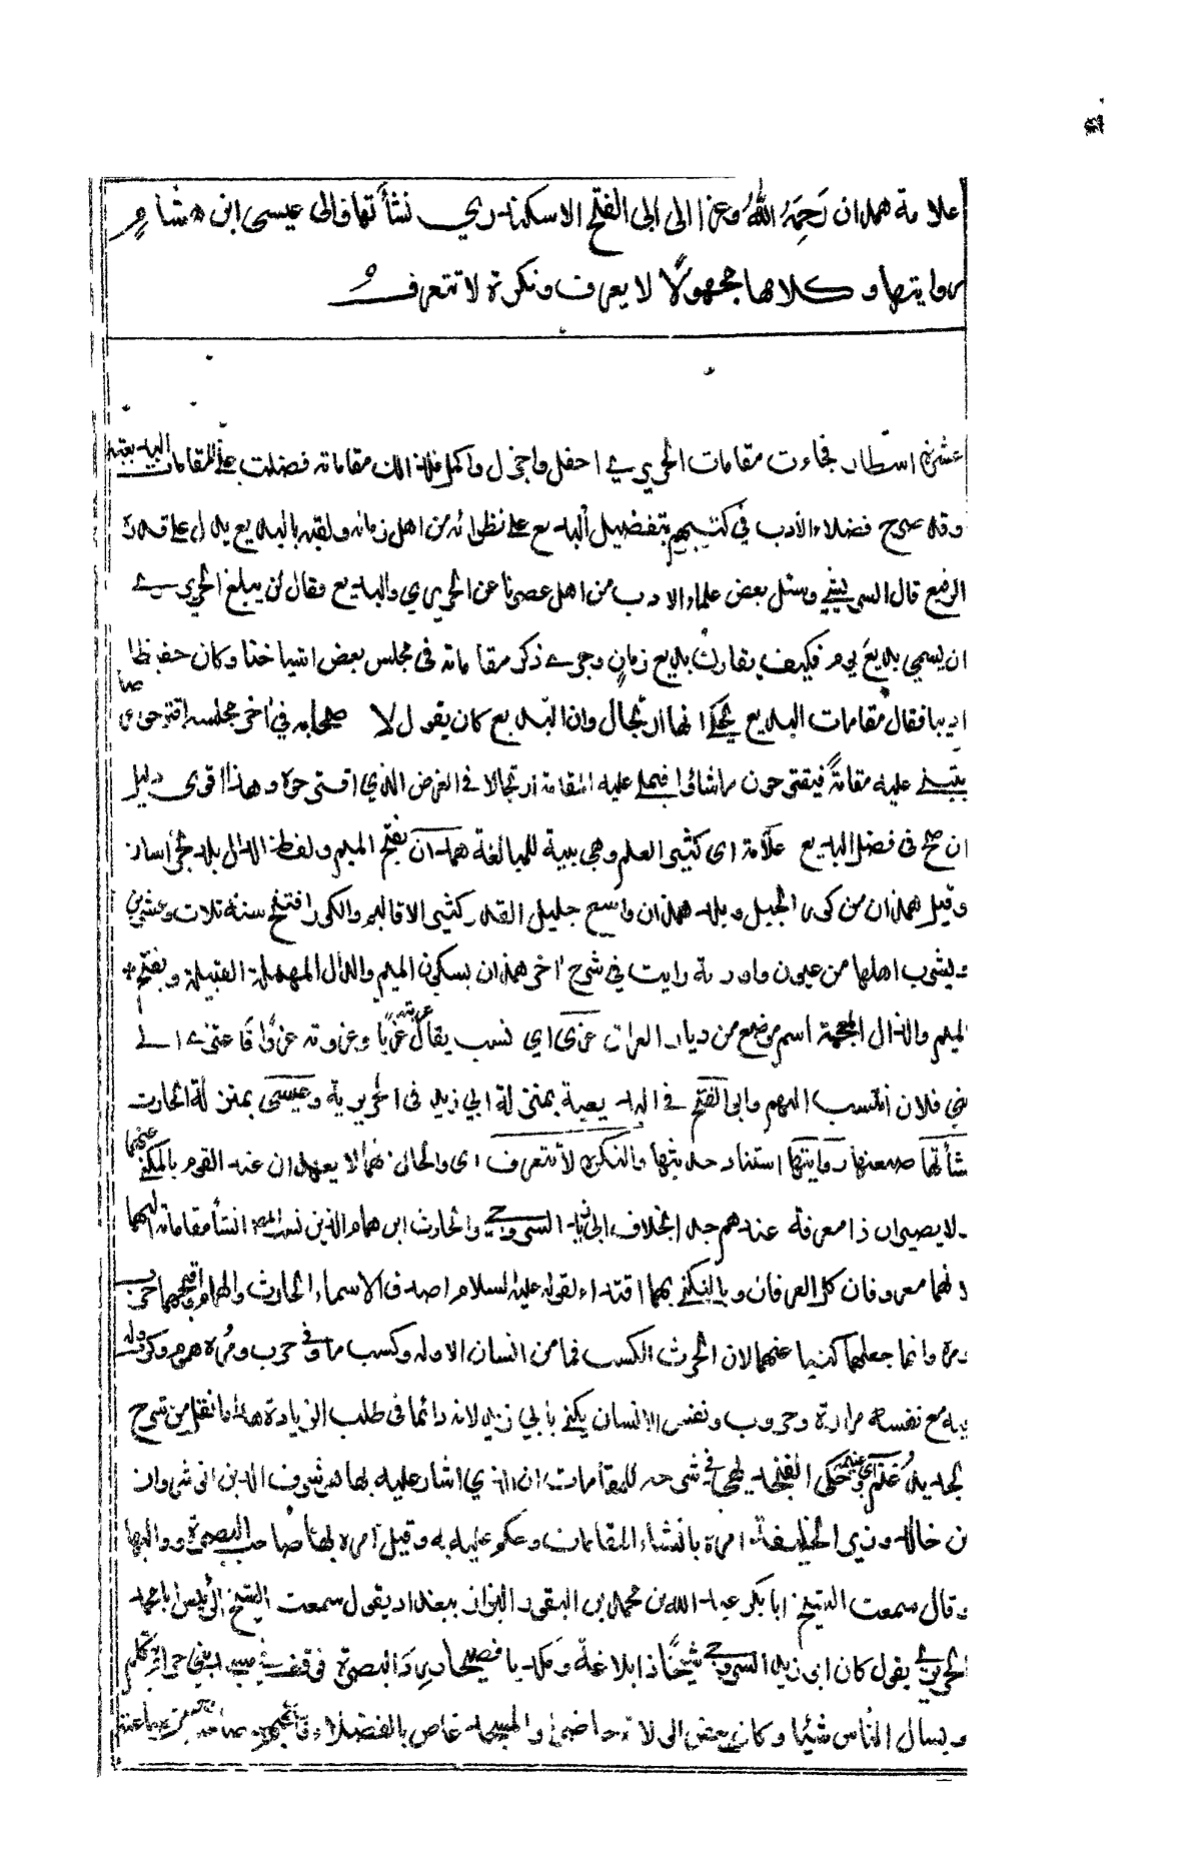 علامة همذان رَحِمَهُ اللهُ وعزا الى ابى الفتح الاسكندري نشأتها والى عيسى ابن هشامٍ
روايتها وكلاهما مجهولًا لا يعرف ونكرة لا تتعرف
عشرة اسطار فجاءت مقامات الحريري احفل واجزل واكمل فلذالك مقاماته فضلت على المقامات البديعية
وقد صرح فضلاء الأدب في كتبهم بتفضيل البديع على نظرائه من اهل زمانه ولقبه بالبديع يدل على قدره
الرفيع قال الشريشي وسئل بعض علماء الادب من اهل عصرنا عن الحريري والبديع فقال لن يبلغ الحريري
ان يسمي بديعَ يوم فكيف يقارن بديع زمانٍ وجرى ذكر مقاماته في مجلس بعض اشياخنا وكان حفيظا
اديبا فقال مقامات البديع يحكى انها ارتجال وان البديع كان يقول لاصحابه في آخر مجلسه اقترحوا
يتبنى عليه مقامةً فيقترحون ماشائوا فيملى عليه المقامة ارتجالا في الغرض الذي اقترحوه وهذا اقوى دليل
ان صح في فضل البديع علّامة اى كثير العلم وهي بنية للمبالغة همذان بفتح الميم ولفظة الذال بلد
وقيل همذان من كور الجبل وبلد همذان واسع جليل القدر كثير الاقاليم والكور افتتح سنة ثلاث وعشرين
ويشرب اهلها من عيون واودية ورايت في شرح آخر همدان بسكون الميم والدال المهملة القبيلة وبفتح
الميم والذال المعجمة اسم موضع من ديار العراق عزى اي نسب يقال عزيته عزيًا وعزوته عزوًا فاعتزى الى
بني فلان انتسب اليهم وابى الفتح في البديعية بمنزلة ابي زيد في الحريرية وعيسى بمنزلة الحارث
نشأتها صنعتها روايتها اسناد حديثها والنكرة لا تتعرف اى والحال انهما لا يعهدان عند القوم بالمكنى عنهما
لا يصيران ذا معرفة عندهم بخلاف ابى زيد السروجي والحارث ابن همام الذين نسب انشأ مقاماته اليهما
انهما معروفان كل العرفان وبالتكنى بهما اقتداء لقوله عليه السلام اصدق الاسماء الحارث والهمام واقبحها حرب
ومرة وانما جعلهما كنيا عنهما لان الحرث الكسب فما من انسان الا وله وكسب ما وفي حرب ومرة
مع نفسه مرارة وحروب ونفس الانسان يكنى بابي زيد لانه دائما في طلب الزيادة هذا ما نقل من شرح
حكى الفنجديهي في شرحه للمقامات ان الذي اشار عليه بها هو شرف الدين انوشروان
بن خالد وزير الخليفة امره بانشاء المقامات وقيل آمره بها صاحب البصرة وواليها
وقال سمعت الشيخ ابا بكر عبد الله بن محمد بن النقور البزاز ببغداد يقول سمعت الشيخ الرئيس ابا محمد
الحريري يقول كان ابو زيد السروجي شيخًا ذا بلاغة فصيحا ورد البصرة فوقف في مسجد بني حرام يتكلم
ويسأل الناس شيئا وكان بعض الولاة حاضرا والمسجد غاص بالفضلاء فاعجبهم